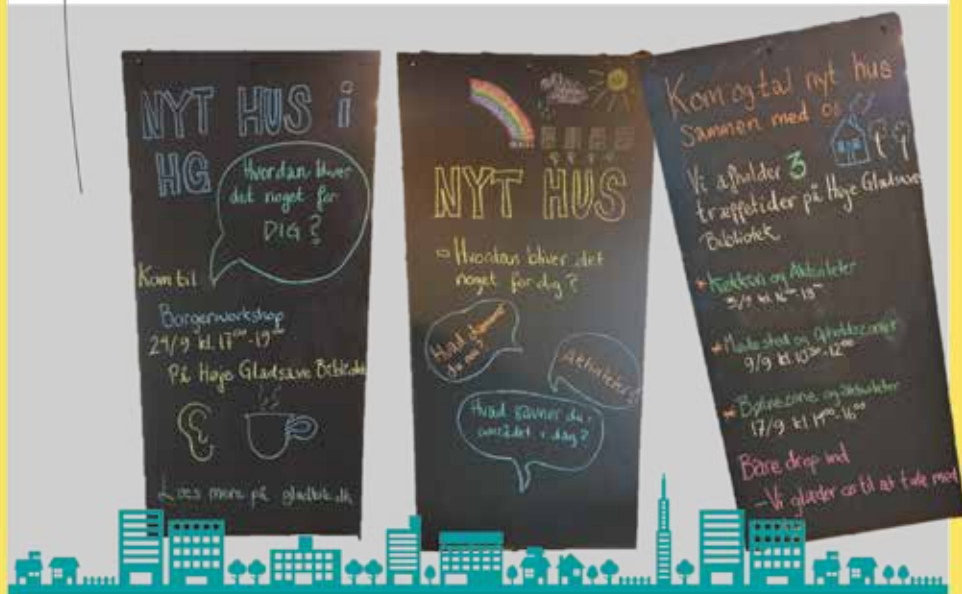 NYT HUS i
HG
Hvordan bliver
det noget for
DIG?
Kom til
Borgerworkshop
24/9 kl. 17⁰⁰-19⁰⁰
På Høje Gladsaxe Bibliotek
Læs mere på gladbib.dk
NYT HUS
Hvordan bliver det
noget for dig?
Hvad drømmer
du om?
Aktiviteter?
Hvad savner du i
området i dag?
Kom og tal nyt hus
sammen med os
Vi afholder 3
træffetider på Høje Gladsaxe
Bibliotek
Køkken og Aktiviteter
3/9 kl. 16⁰⁰-18⁰⁰
Mødested og Opholdszoner
9/9 kl. 10³⁰-12⁰⁰
Børnezone og aktiviteter
17/9 kl 14⁰⁰-16⁰⁰
Bare drop ind
-Vi glæder os til at tale med